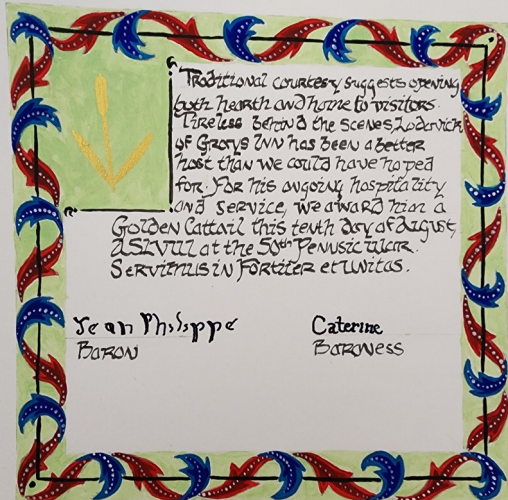 Traditional courtesy suggests opening
both hearth and home to visitors.
Tireless behind the scenes, Lodowick
of Grays Inn has been a better
host than we could have hoped
for. For his ongoing hospitality
and service, we award him a
Golden Cattail this tenth day of August,
ASLVIII at the 50th Pennsic War.
Servimus in Fortiter et Unitas.
Jean Philippe Caterine
Baron Baroness